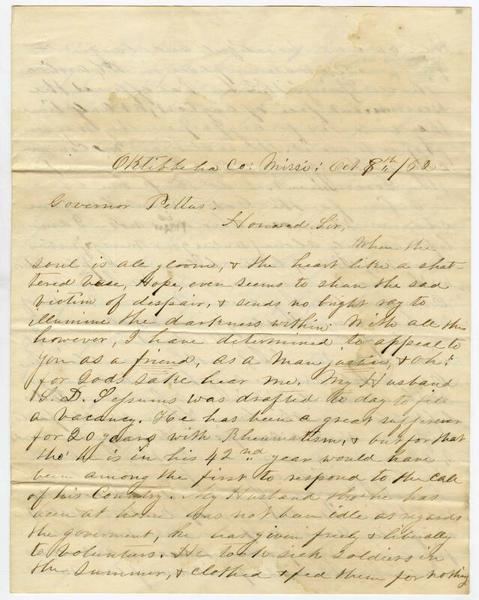 Oktibbeha Co: Missi: Oct 8th /62
Governor Pettus:
Honored Sir,
When the
soul is all gloom, & the heart like a shat-
tered vase, Hope, even seems to shun the sad
victim of despair, & sends no bright ray to
illumine the darkness within. With all this
however, I have determined to appeal to
you as a friend, as a man, & Oh!
for Gods sake hear me. My Husband
D. Sessums was drafted to day to fill
a vacancy. He has been a great sufferer
for 20 years with Rheumatism, & but for that
tho' he is in his 42nd year would have
been among the first to respond to the call
of his Country. My Husband tho' he has
been at home has not been idle as regards
the goverment, he has given freely & liberally
to Volunteers. He took sick Soldiers in
the Summer, & clothed & fed them for nothing